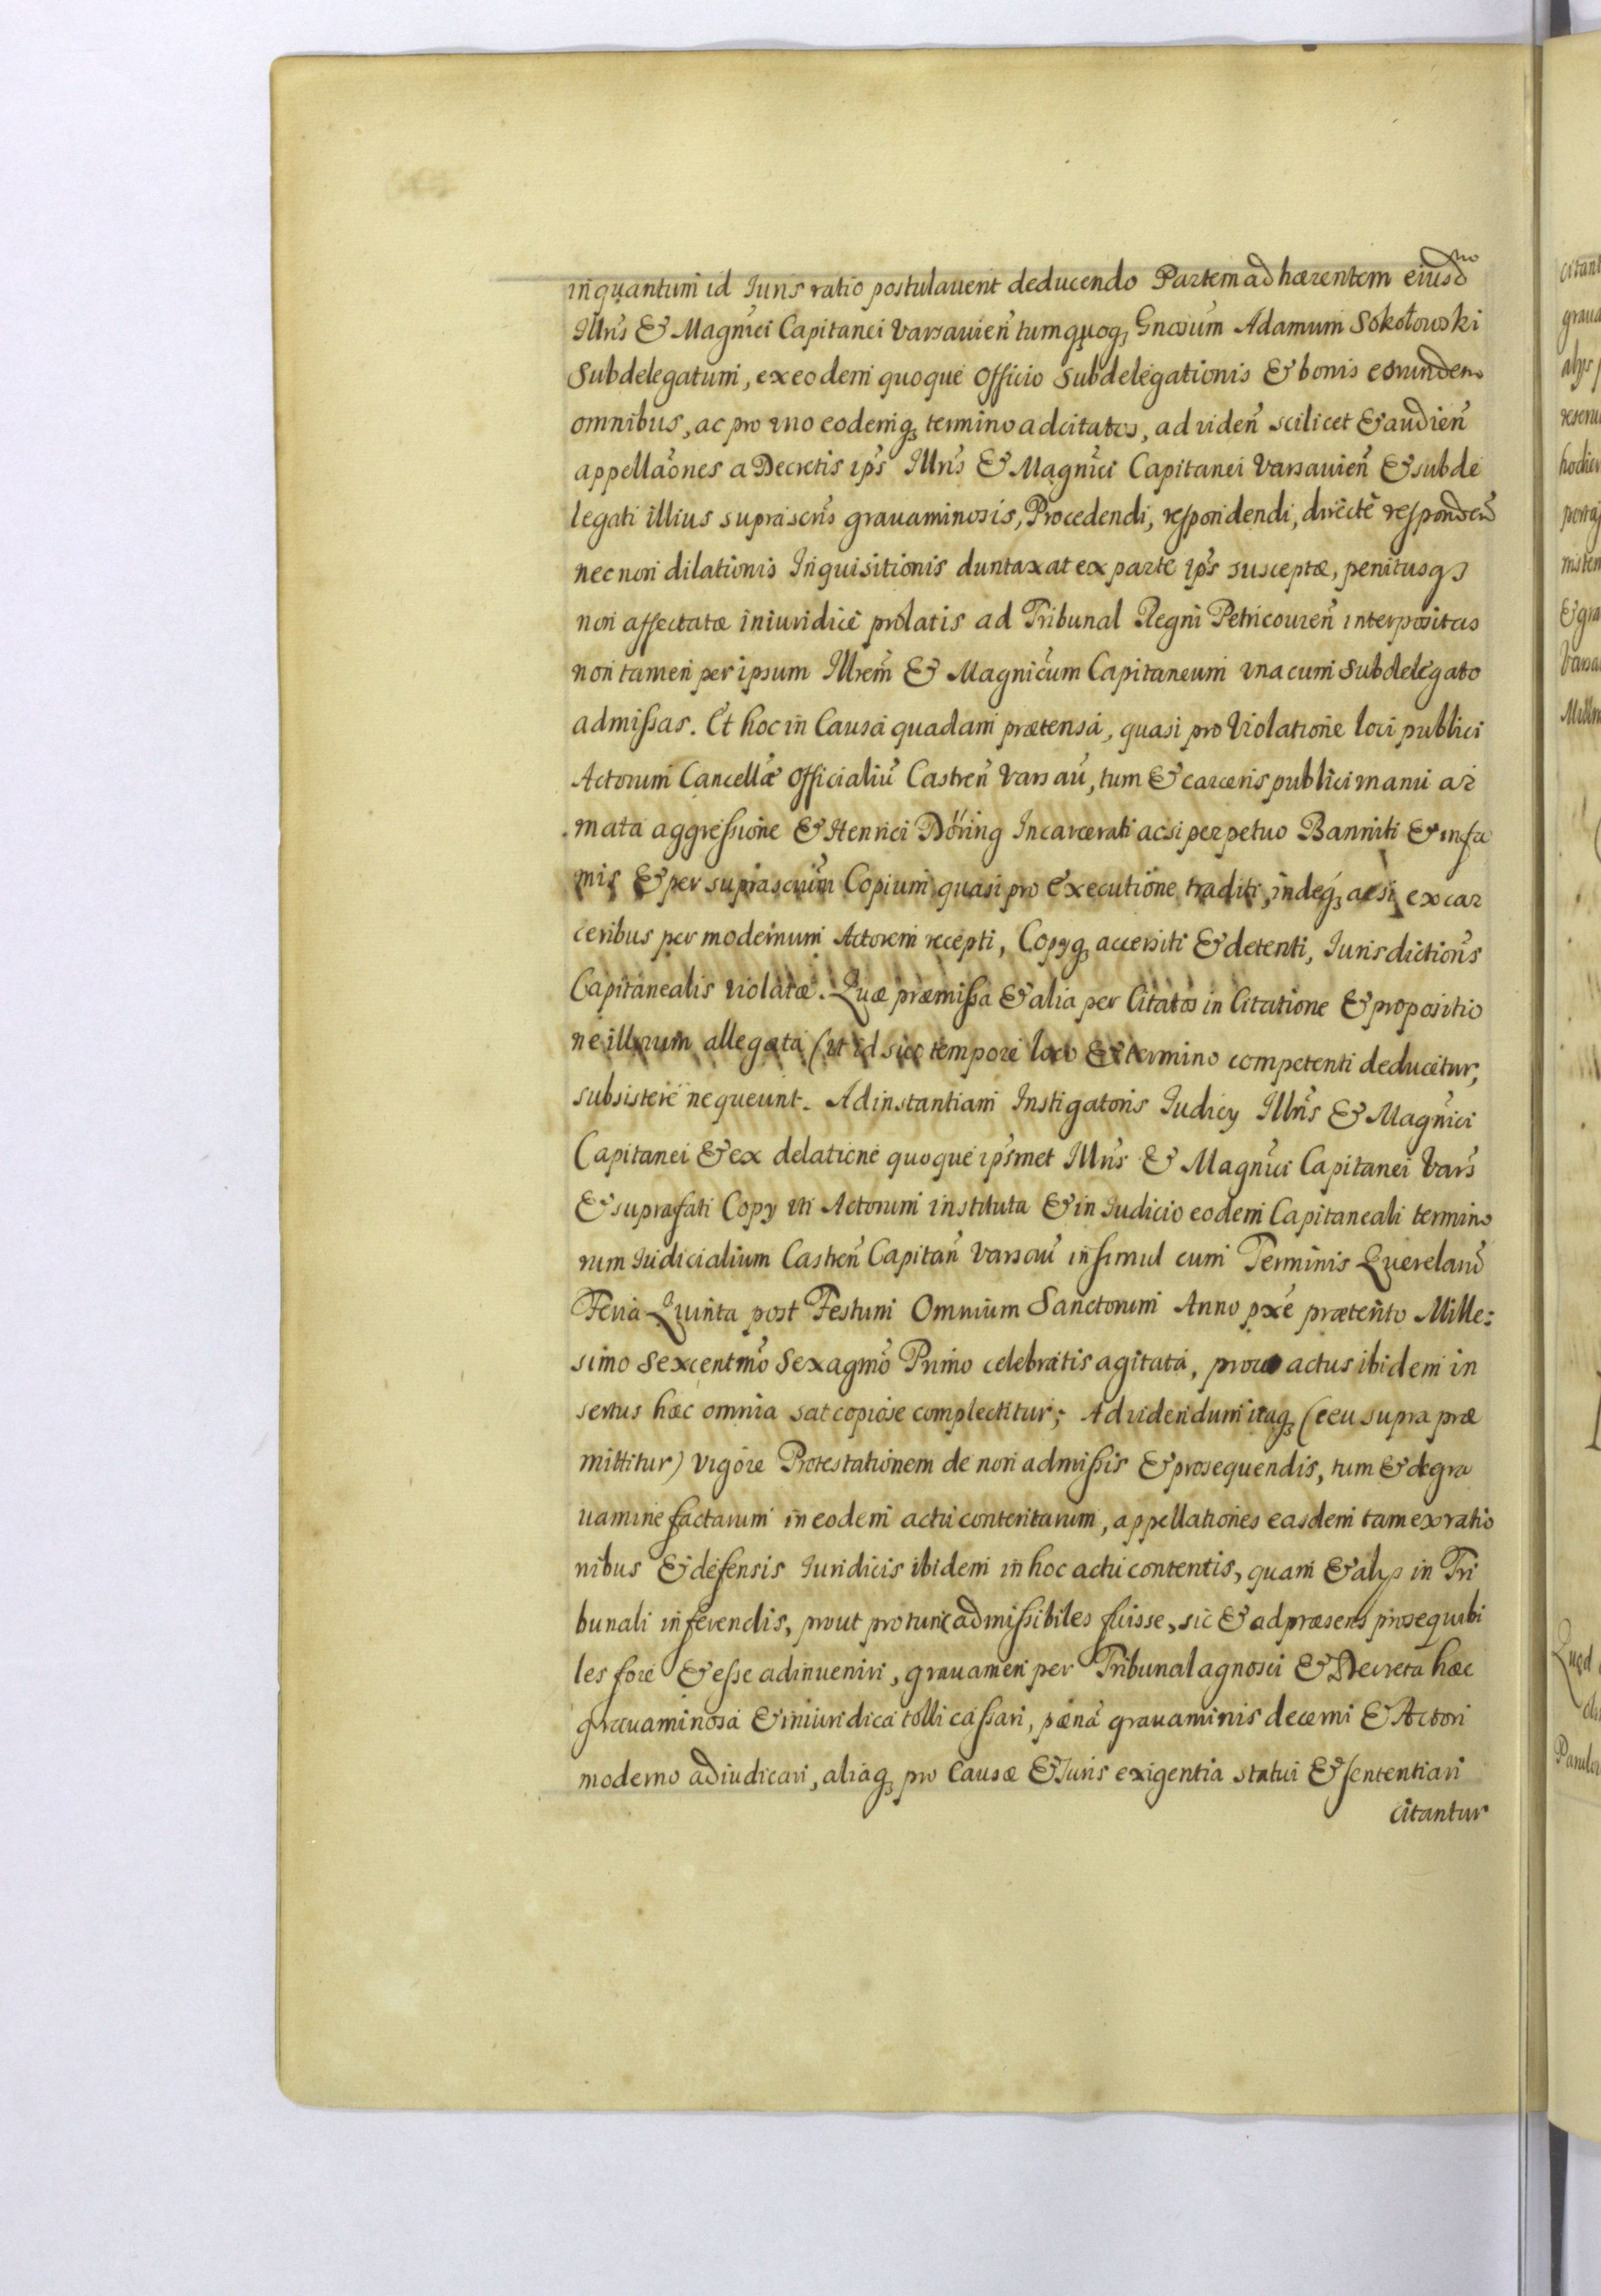 inquantum id Iuris ratio postulauerit deducendo Partem adhærentem eiusd
Illris & Magnĩci Capitanei Varsauieñ tum quoq Gnosum Adamum Sokołowski
Subdelegatum, ex eodem quoque Officio Subdelegationis & bonis eorundem
omnibus, ac pro vno eodemq termino adcitatos, ad videñ scilicet & audieñ
appellaõnes a Decretis ips Illris & Magnĩci Capitanei Varsauieñ & subde
legati illius suprascris grauaminosis, Procedendi, respondendi, directè respondeñ
nec non dilationis Inquisitionis duntaxat ex parte ips susceptæ, penitusq
non affectatæ iniuridicè prolatis ad Tribunal Regni Petricouieñ interpositas
non tamen per ipsum Illrem & Magnicum Capitaneum vna cum Subdelegato
admissas. Et hoc in Causa quadam prætensa, quasi pro Violatione loci publici
Actorum Cancellæ Officialiũ Castreñ Varsaũ, tum & carceris publici manu ar
mata aggressione & Henrici Döring Incarcerati acsi perpetuo Banniti & infa
mis & per suprascrium Copium quasi pro executione traditi, indeq acsi ex car
ceribus per modernum Actorem recepti, Copyq accersiti & detenti, Iurisdictionis
Capitanealis violatæ. Quæ præmissa & alia per Citatos in Citatione & propositio
ne illorum allegata (ut id suo tempore loco & termino competenti deducetur,
subsistere nequeunt. Ad instantiam Instigatoris Iudicy Illris & Magnĩci
Capitanei & ex delatione quoque ipsmet Illris & Magnĩci Capitanei Vars
& suprafati Copy vti Actorum instituta & in Iudicio eodem Capitaneali termino
rum Iudicialium Castreñ Capitañ Varsaũ insimul cum Terminis Querelarũ
Feria Quinta post Festum Omnium Sanctorum Anno pxe prætento Mille:
simo Sexcentmo Sexagmo Primo celebratis agitata, prout actus ibidem in
sertus hæc omnia sat copiose complectitur; Ad videndum itaq (ceu supra præ
mittitur) vigore Protestationem de non admissis & prosequendis, tum & de gra
uamine factarum in eodem actu contentarum, appellationes easdem tam ex ratio
nibus & defensis Iuridicis ibidem in hoc actu contentis, quam & alys in Tri
bunali inferendis, prout pro tunc admissibiles fuisse, sic & ad præsens prosequibi
les fore & esse adinueniri, grauamen per Tribunal agnosci & Decreta hæc
grauaminosa & iniuridica tolli cassari, pænã grauaminis decerni & Actori
moderno adiudicari, aliaq pro Causæ & Iuris exigentia statui & sententiari
citantur